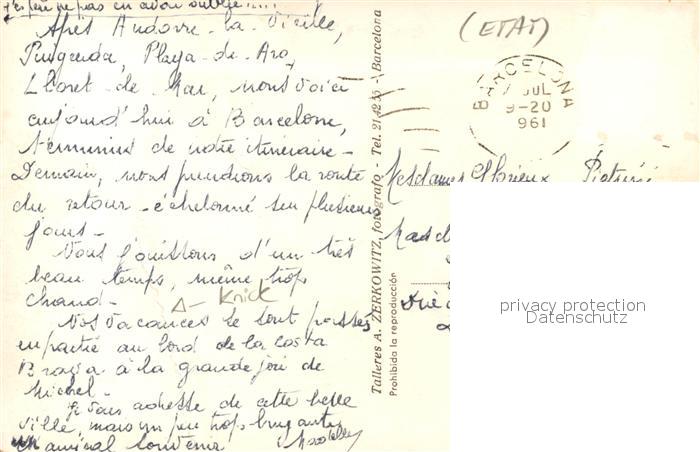 j'espère ne pas en avoir oublié !....
Après Andorre-la-Vieille,
Puigcerda, Playa-de-Aro,
Lloret-de-Mar, nous voici
aujourd'hui à Barcelone,
terminus de notre itinéraire -
Demain, nous prendrons la route
du retour - échelonné sur plusieurs
jours -
Nous jouissons d'un très
beau temps, même trop
chaud -
Δ - Knick
Nos vacances se sont passées
en partie au bord de la Costa
Brava à la grande joie de
Michel -
Je vous adresse de cette belle
ville, mais un peu trop bruyante,
un amical souvenir
Talleres A. ZERKOWITZ, fotógrafo - Tel. 21 42 35 - Barcelona
Prohibida la reproducción
(ETAT)
BARCELONA
JUL
9-20
961
Mesdames
privacy protection
Datenschutz